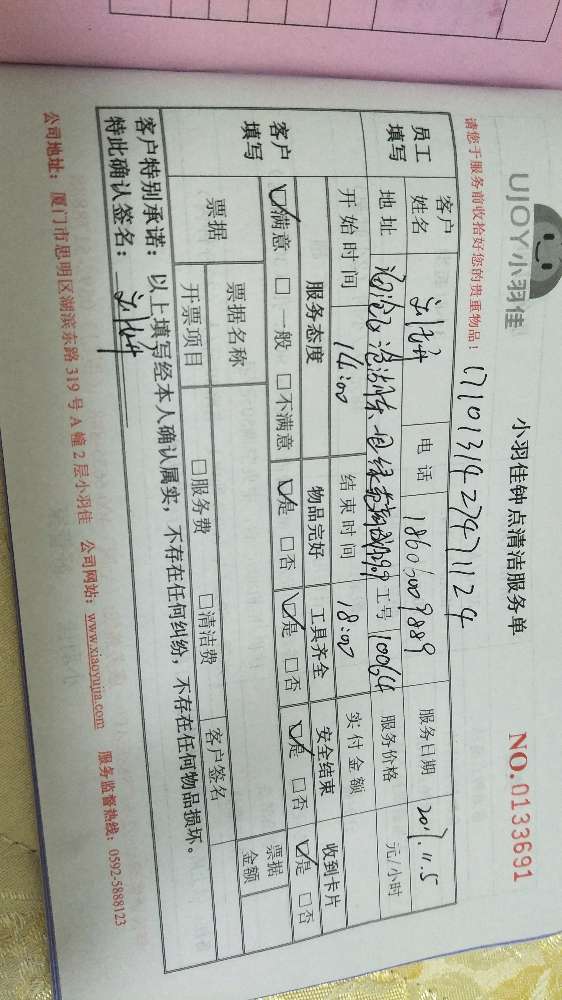 UJOY小羽佳
小羽佳钟点清洁服务单
NO.0133691
请您于服务前收拾好您的贵重物品！
员工填写
客户姓名
电话
服务日期 2017.11.5
地址
工号 10064
服务价格 元/小时
开始时间 14:00
结束时间 18:00
实付金额
客户填写
服务态度 物品完好 工具齐全 安全结束 收到卡片
☑满意 □一般 □不满意 ☑是 □否 ☑是 □否 ☑是 □否 ☑是 □否
票据
票据名称
客户签名
票据金额
开票项目 □服务费 □清洁费
客户特别承诺：以上填写经本人确认属实，不存在任何纠纷，不存在任何物品损坏。
特此确认签名：
公司地址：厦门市思明区湖滨东路319号A幢2层小羽佳 公司网站：www.xiaoyujia.com 服务监督热线：0592-5888123